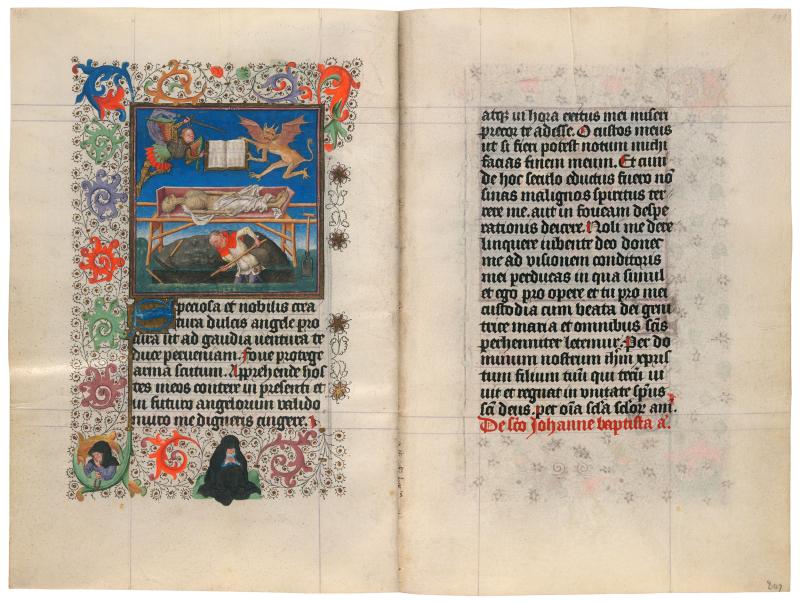 Speciosa et nobilis crea
tura dulcis angele pro
cura ut ad gaudia ventura te
duce perveniam. Fove protege
arma scutum. Apprehende hos
tes meos contere in presenti et
in futuro angelorum valido
muro me digneris cingere.
atqz in hora exitus mei miseri
precor te adesse. O custos meus
ut si fieri potest notum michi
facias finem meum. Et cum
de hoc seculo eductus fuero nō
sinas malignos spiritus ter
rere me. aut in foveam despe
rationis deicere. Noli me dere
linquere iubente deo donec
me ad visionem conditoris
mei perducas in qua simul
et ego pro opere et tu pro mei
custodia cum beata dei geni
trice maria et omnibus scīs
perhenniter letemur. Per do
minum nostrum ihm xpris
tum filium tuū qui tecū vi
vit et regnat in unitate sp̄us
scī deus. per oīa sc̄la sc̄lor̄ am̄.
De sc̄o Johanne baptista a.
191